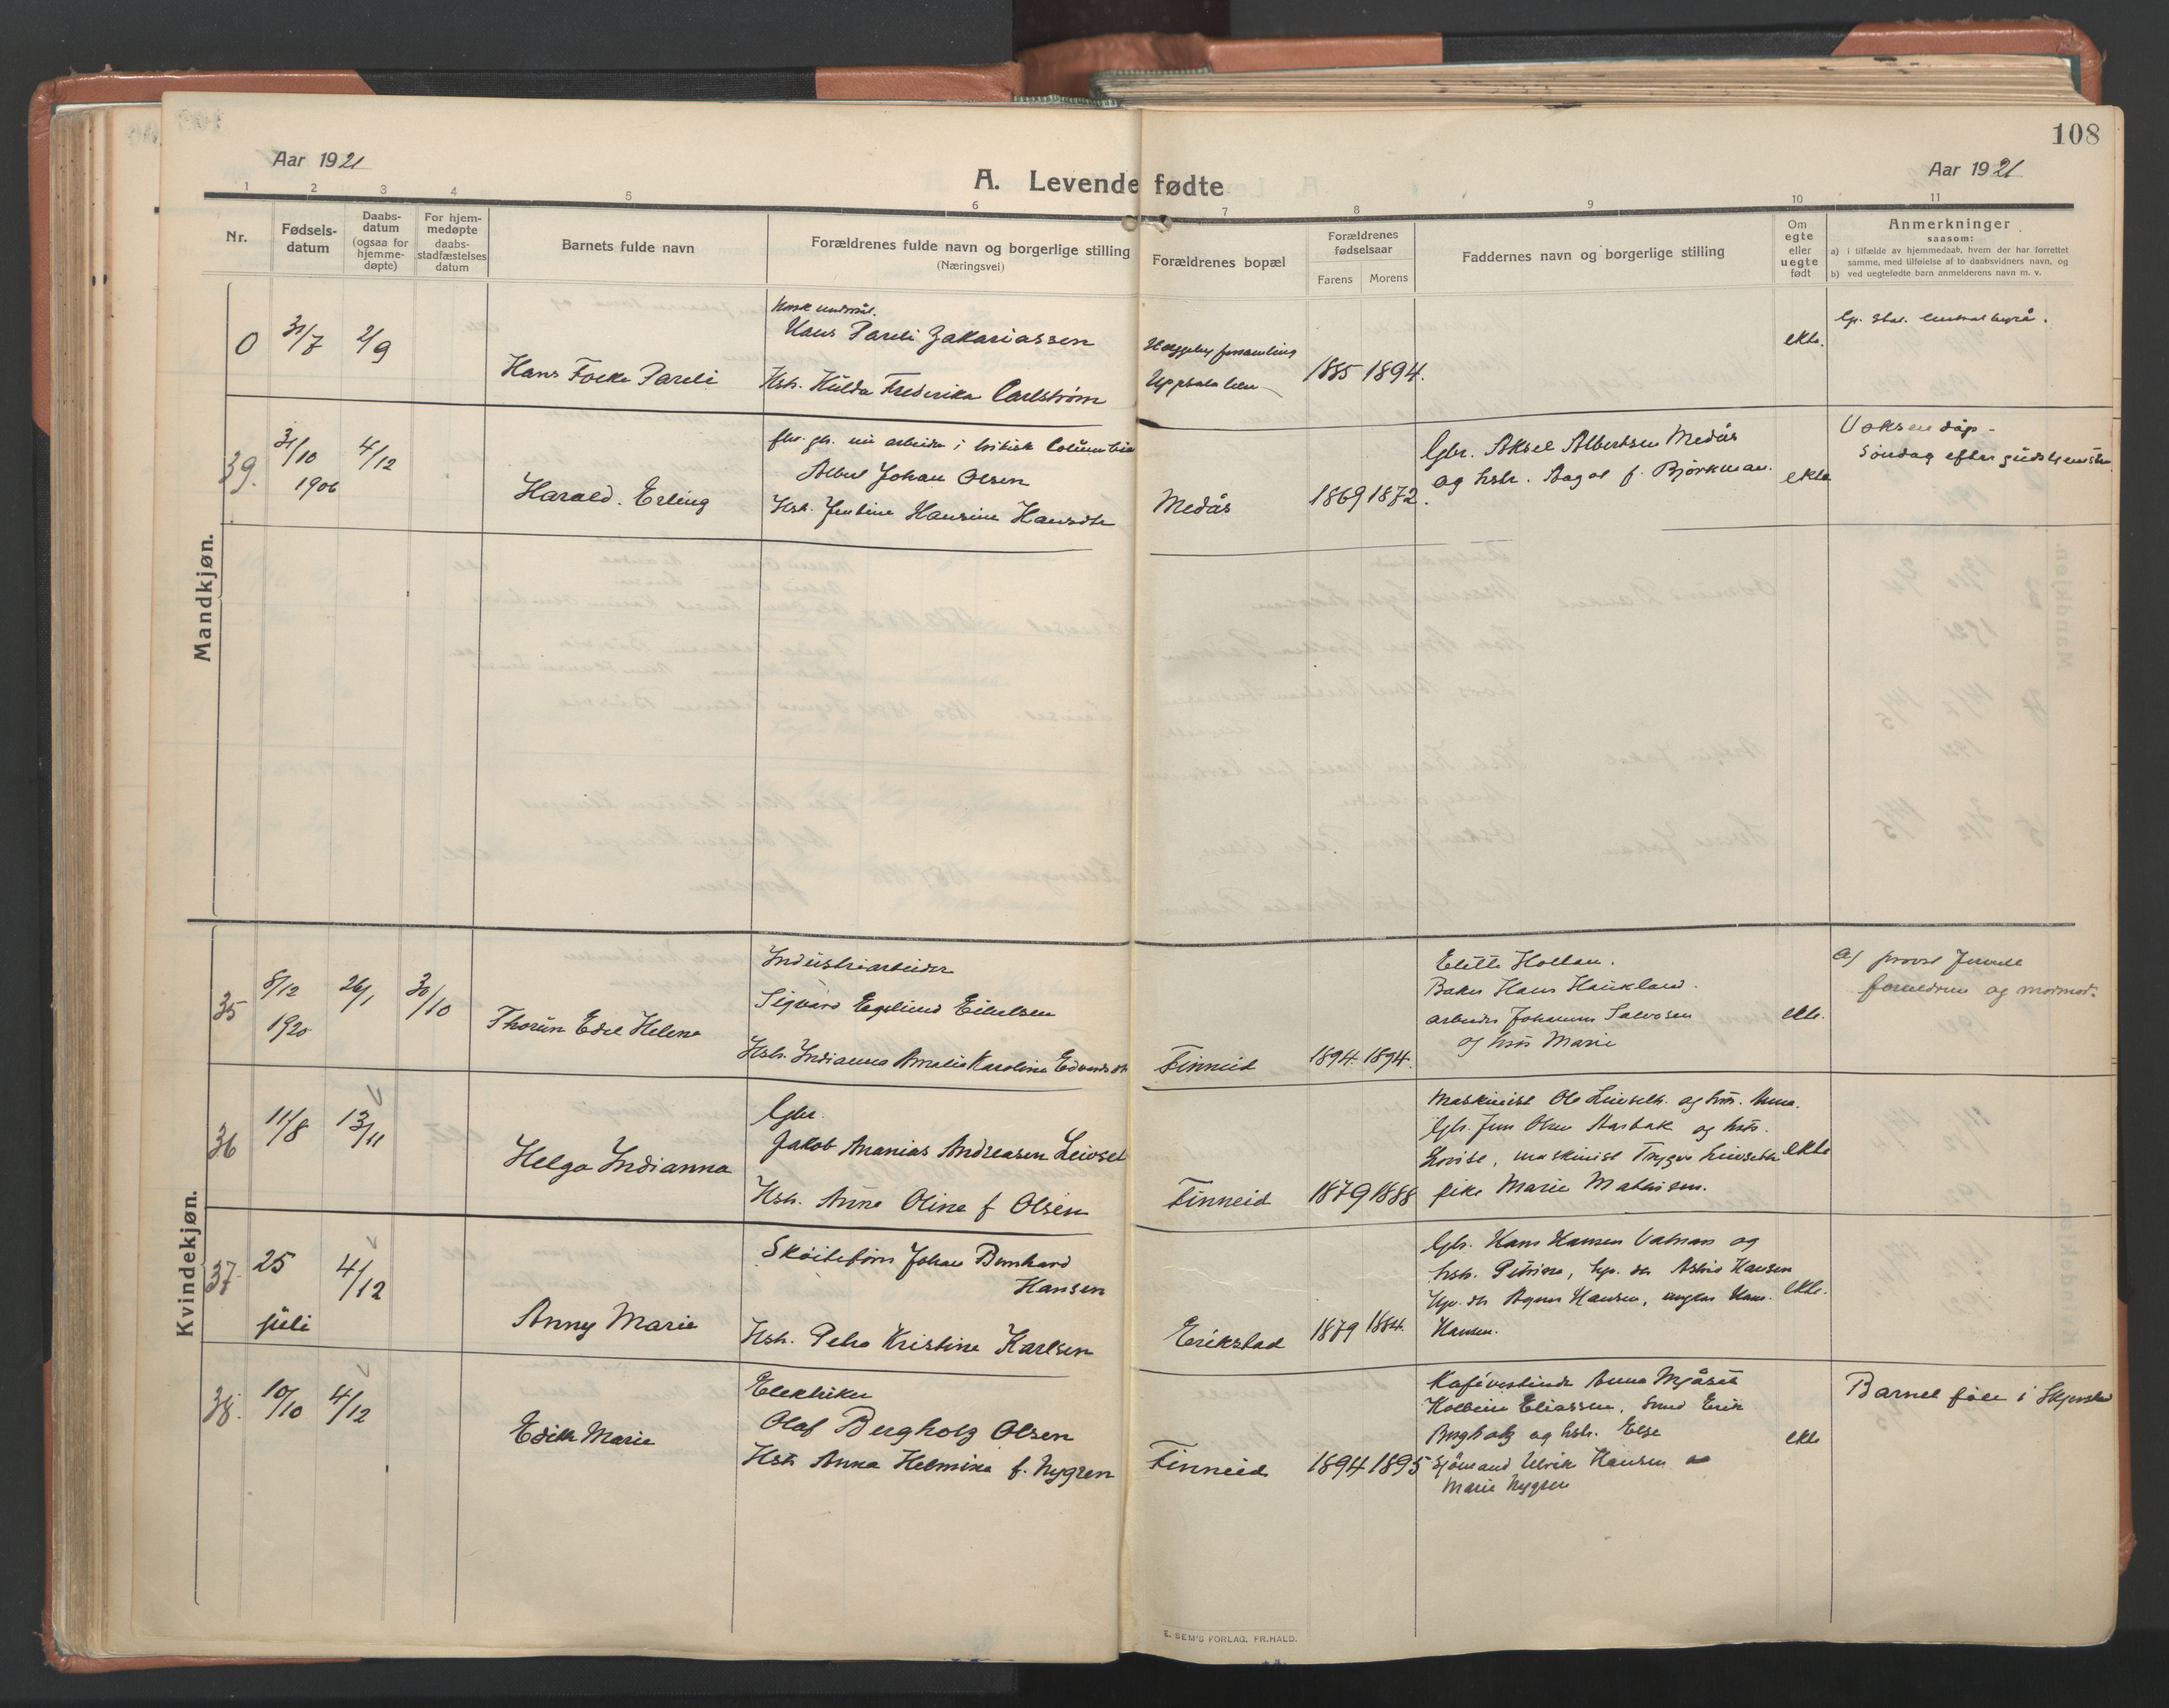 108
Aar 1921
Aar 1921
A. Levende fødte
1 2 3 4 5 6 7 8 9 10 11
Nr.
Fødsels-
datum
Daabs-
datum
(ogsaa for
hjemme-
døpte)
For hjem-
medøpte
daabs-
stadfæstelses
datum
Barnets fulde navn
Forældrenes fulde navn og borgerlige stilling
(Næringsvei)
Forældrenes bopæl
Forældrenes
fødselsaar
Farens Morens
Faddernes navn og borgerlige stilling
Om
egte
eller
uegte
født
Anmerkninger
saasom:
a) i tilfælde av hjemmedaab, hvem der har forrettet
samme, med tilføielse af to daabsvidners navn, og
b) ved uegtefødte barn anmelderens navn m. v.
Mandkjøn.
0 31/7 2/9
Hans Focke Pareli
Norsk undersåt.
Hans Pareli Zakariassen
Hstr. Hulda Frederika Carlstrøm
Häggeby
Uppsala
1885 1894.
ekte.
39. 31/10 4/12
1906
Harald. Erling
arbeider i
Johan Olsen
Hst. Jentine Hansine Hansdtr
Medås
1869 1872.
Gbr. Aksel Albertsen Medås
og hstr. Dagot f. Bjørkman.
ekte
Voksendåp -
Søndag efter gudstjeneste
Kvindekjøn.
35 8/12 26/1 30/10
1920
Thorun Edel Helene
Industriarbeider
Sigvard Engelund Eilertsen
Hstr. Indianna Amalie Karoline
Finneid
1894. 1894.
Hollan.
Baker Hans Haukland.
arbeider Johannes Salvosen
og hrs Marie
ekte.
Af provst
forældrene og mormor.
36 11/8 13/11
Helga Indianna
Gbr.
Jakob Ananias Andreasen Leivset
Hstr. Anna Oline f Olsen
Finneid
1879 1888
Maskinist Ole Leivseth. og hrs. Anna.
Gbr. Jens Olsen og hrs.
Lovise, maskinist Trygve Leivseth
pike Marie Mathisen.
ekte
37 25 4/12
juli
Anny Marie
Skøitefører Johan Bernhard
Hansen
Hstr. Petra Kristine Karlsen
Erikstad
1879 1884.
Gbr. Hans Hansen Vatnan og
hstr. Petrine, gp. dtr Astrid Hansen
Gp. dtr Agnes Hansen, ungkar Hans.
Hansen.
ekte.
38. 10/10 4/12
Edith Marie
Elektriker
Olaf Bergholz Olsen
Hstr Anna Helmine f. Nygren
Finneid
1894 1895
Kafévertinde Anna Mjåset
Kolbein Eliassen, Smed Erik
Bergholz og hstr. Else
Sjømand Ulrik Hansen og
Marie Nygren
ekte
Barnet født i Skjerstad
E. SEM'S FORLAG. FR.HALD.